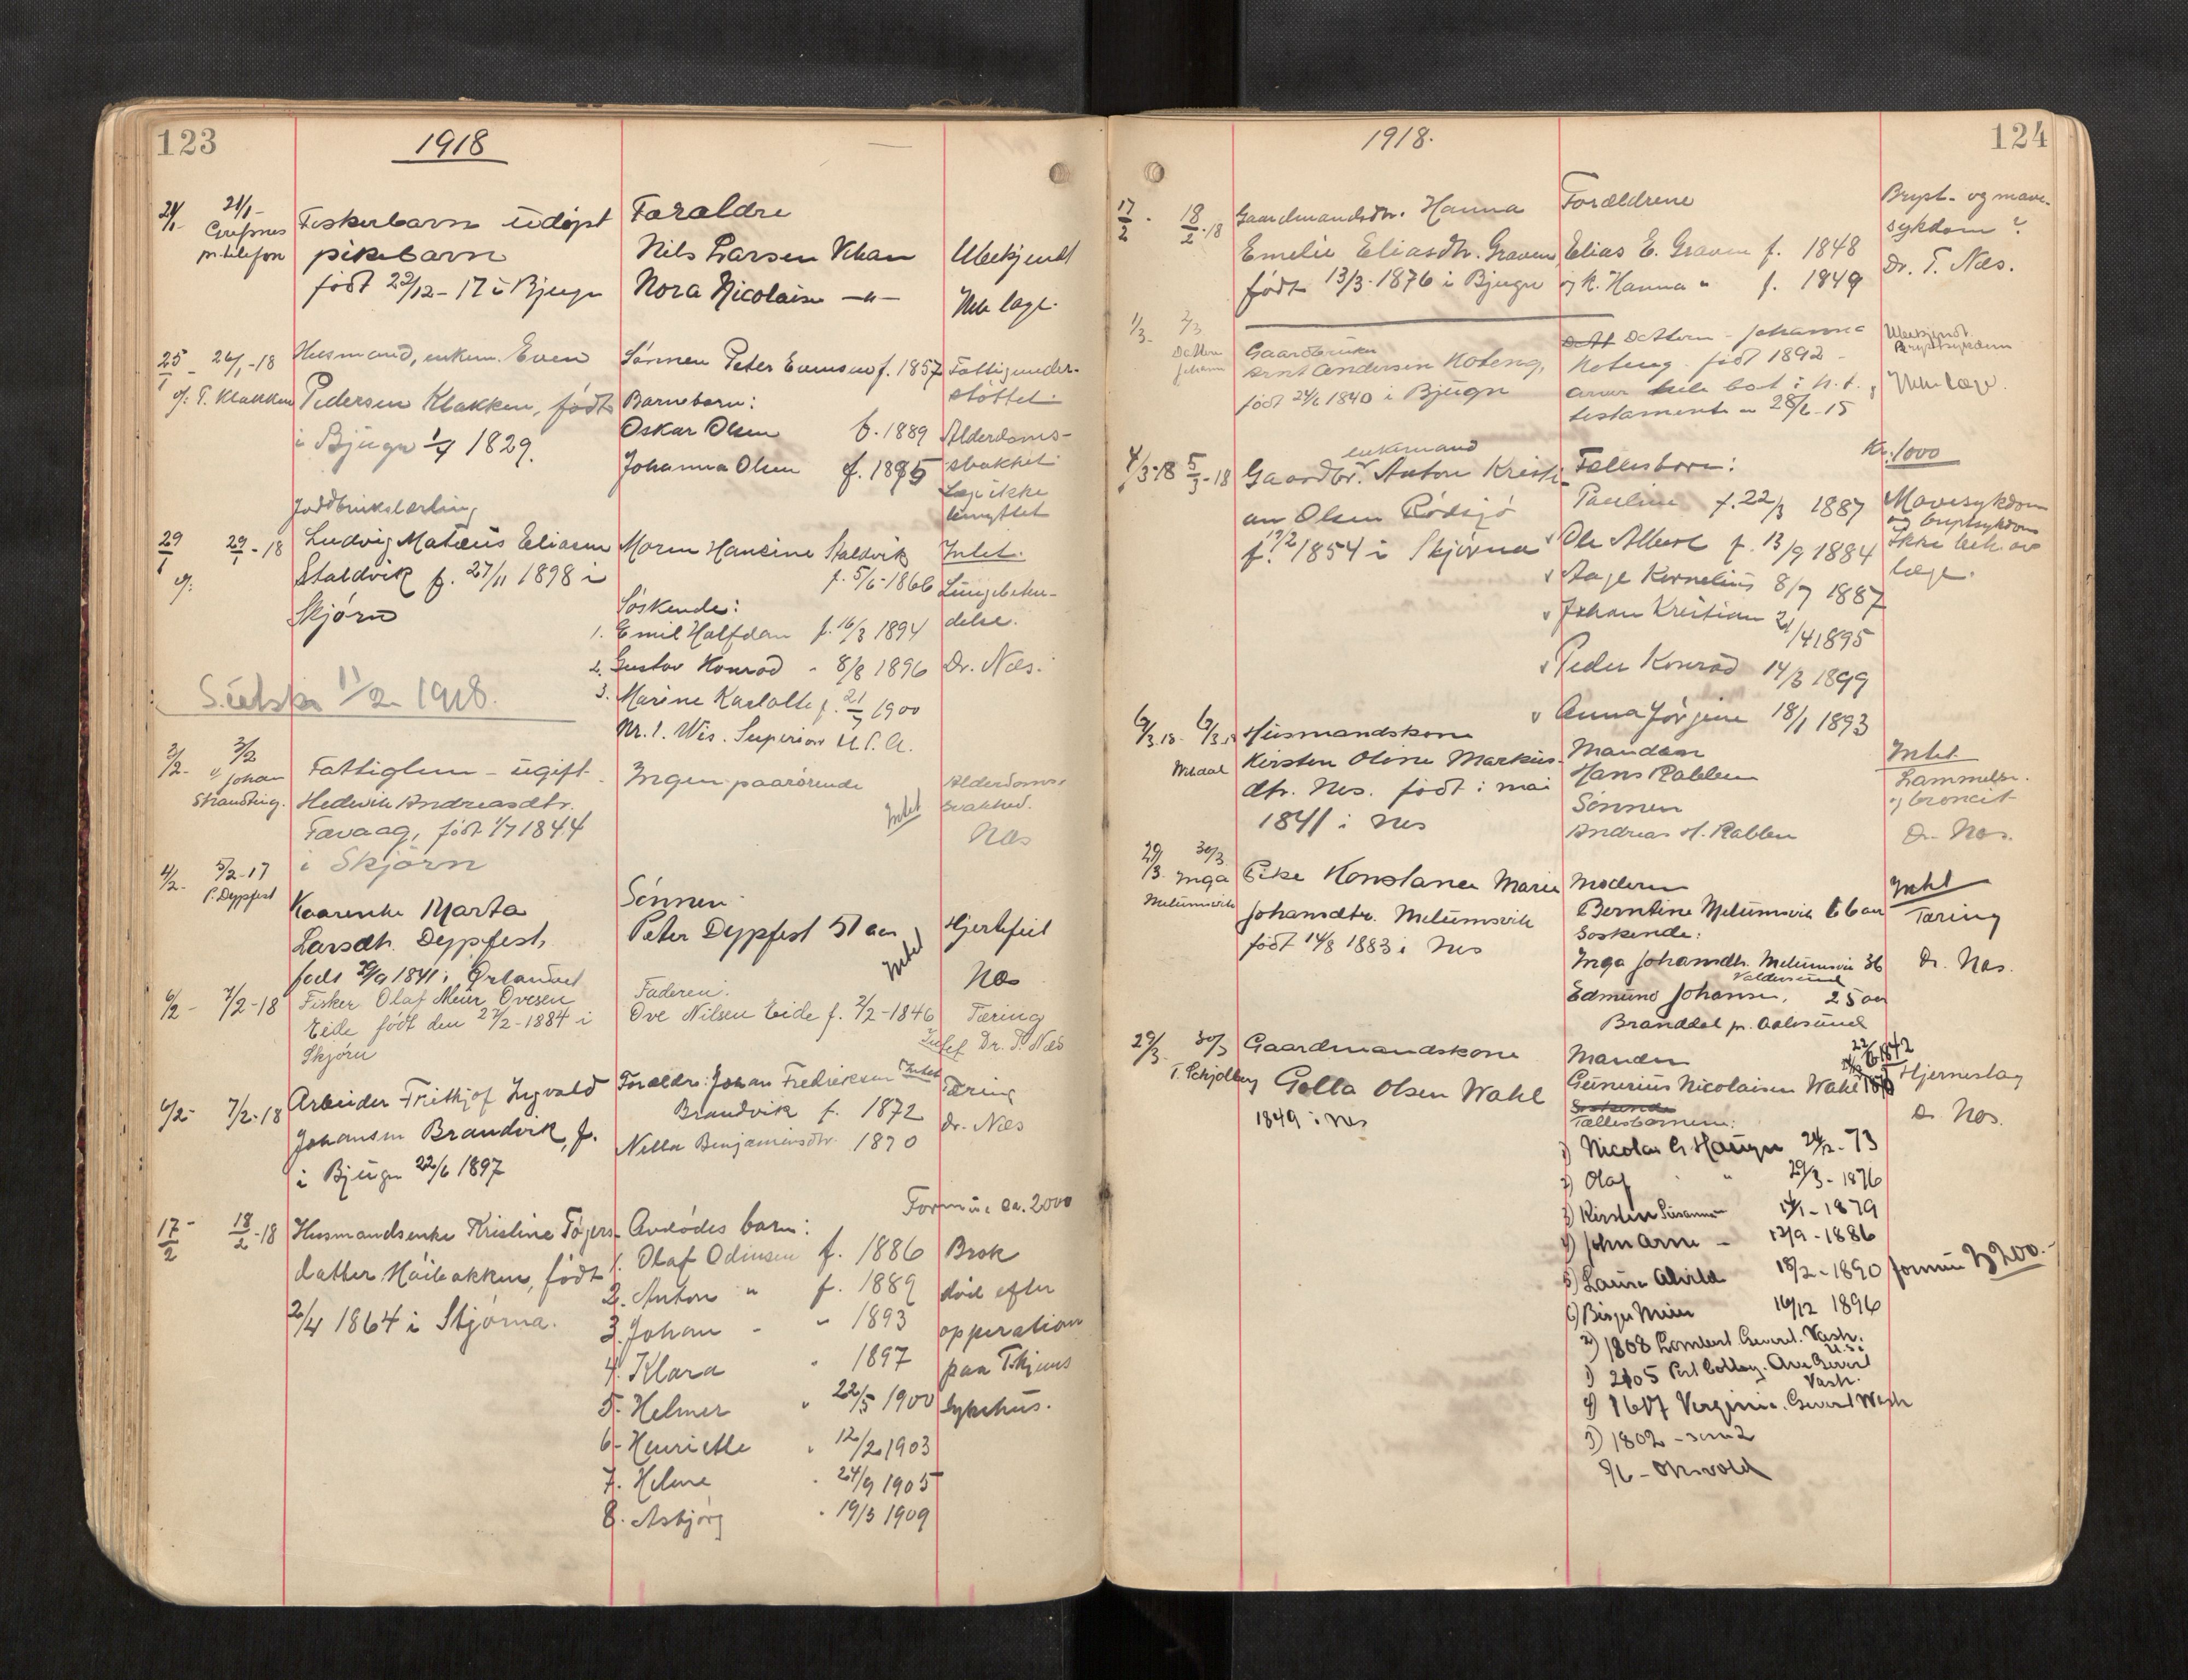 123
1918
21/1 21/1
pr. telefon
Fiskerbarn udøpt
pikebarn
født 22/12-17 i Bjugn
Forældre
Nils Larsen
Nora Nicolaisen —"—
Ubekjendt
25/1 26/1-18
Husmand, enkem. Even
Pedersen Klakken, født
i Bjugn 1829.
Sønnen Peter Evensen f. 1857
Barnebarn:
Oskar Olsen f. 1889
Johanna Olsen f. 1895
Fattigunder-
støttet
Alderdoms-
svakhet
Læge ikke
benyttet
29/1 29/1-18
Ludvig Mateus Eliasen
Staldvik f. 27/11 1898 i
Skjørn
Maren Hansine Staldvik
f. 5/6-1866
Søskende:
1. Emil Halfdan f. 16/3 1894
2. Gustav Konrad " 8/8 1896
3. Marine f. 21/7 1900
Nr. 1. Wis. Superior U.S.A.
Intet.
Lungebeten-
delse.
Dr. Næs.
1/2 1918.
2/2- 3/2
Johan
Fattiglem - ugift.
Hedevik Andreasdtr.
født 1/7 1844
i Skjørn
Ingen paarørende
Intet
Alderdoms-
svakhed.
Næs
4/2- 5/2-17
P. Dypfest
Marta
Larsdtr. Dypfest,
født 1841 i Ørlandet
Sønnen
Peter Dypfest 51 aar
Intet
Hjertefeil
Næs
6/2- 7/2-18
Fisker Olaf Meier Ovesen
Eide født den 27/2-1884 i
Skjørn
Faderen:
Ove Nilsen Eide f. 2/2-1846
Tæring
Intet Dr. T. Næs
6/2- 7/2-18
Arbeider Frithjof Ingvald
Johansen Brandvik, f.
i Bjugn 22/6 1897
Forældre: Johan Fredriksen
Brandvik f. 1872
Nella Benjaminsdtr. 1870
Intet
Tæring
dr. Næs
17/2- 18/2-18
Husmandsenke Kristine
datter Haibakken, født
1864 i Stjørna.
Formue ca. 2000
Avdødes barn:
1. Olaf Odinsen f. 1886
2. Anton " f. 1889
3. Johan - " 1893
4. Klara " 1897
5. Helmer " 22/5 1900
6. Henriette " 12/2 1903
7. Helene " 24/9 1905
8. Asbjørg " 19/3 1909
Brok
død efter
opperation
paa Tkjems
sykehus.
124
1918.
17/2. 18/2.18
Gaardmandsdtr. Hanna
Emelie Eliasdtr. Graven
født 13/3-1876 i Bjugn
Forældrene
Elias E. Graven f. 1848
og k. Hanna " f. 1849
Bryst- og mave-
sykdom?
Dr. T. Næs.
1/3. 2/3
Datteren
Johanna
Gaardbruker
Arnt Andersen Koteng,
født 24/6 1840 i Bjugn
Datteren - Johanna
Koteng født 1892 -
arver hele bot i h.t.
testamente
Ubekjendt
Brystsykdom
4/3-18 5/3-18
enkemand
Gaardbr. Anton Kristi-
an Olsen Rødsjø
1854 i Stjørna
Fællesbarn:
Pauline f. 22/3 1887
Ole Albert f. 13/9 1884
Aage Kornelius 8/7 1887
Johan Kristian 21/4 1895
Peder Konrad 14/3 1899
Anna Jørgine 18/1 1893
Kr. 1000
Mavesykdom
og brystsykdom
Ikke beh. av
læge.
6/3.18- 6/3.18
Husmandskone
Kirsten Oline Markus-
dtr. Nes. født i mai
1841 i Nes
Manden
Hans Rabben
Sønnen
Andreas H. Rabben
Intet
Lammelse.
og broncit
Dr. Næs.
29/3. 30/3.
Inga
Melumsvik
Pike Konstance Marie
Johansdtr. Melumsvik
født 14/8 1883 i Nes
Moderen
Berntine Melumsvik 66 aar
Søskende:
Inga Johansdtr. Melumsvik 36
Valdersund
Edmund Johansen, 25 aar
Branddal pr. Aalesund
Intet
Tæring
Dr. Næs.
29/3. 30/3
T. Schjølberg
Gaardmandskone
Golla Olsen Wahl
1849 i Nes
Manden
Gunerius Nicolaisen Wahl
Søskende
Fællesbarnene:
1) Nicolai G Haugen 24/12-73
2) Olaf " 29/3-1876
3) Kirsten Susanna 1879
4) John Arne - 12/9-1886
5) Laura Alvilda 18/2-1890
6) Birger Meier 16/12 1896
Hjerneslag
Dr. Næs.
formue 3200.-
2) 1808 Lombert. Everet. Vash.
U.S.
1) 2105 Ave Everet
Vash.
4) 1607 Verginia. Everet Wash
5) 1802 - som 2